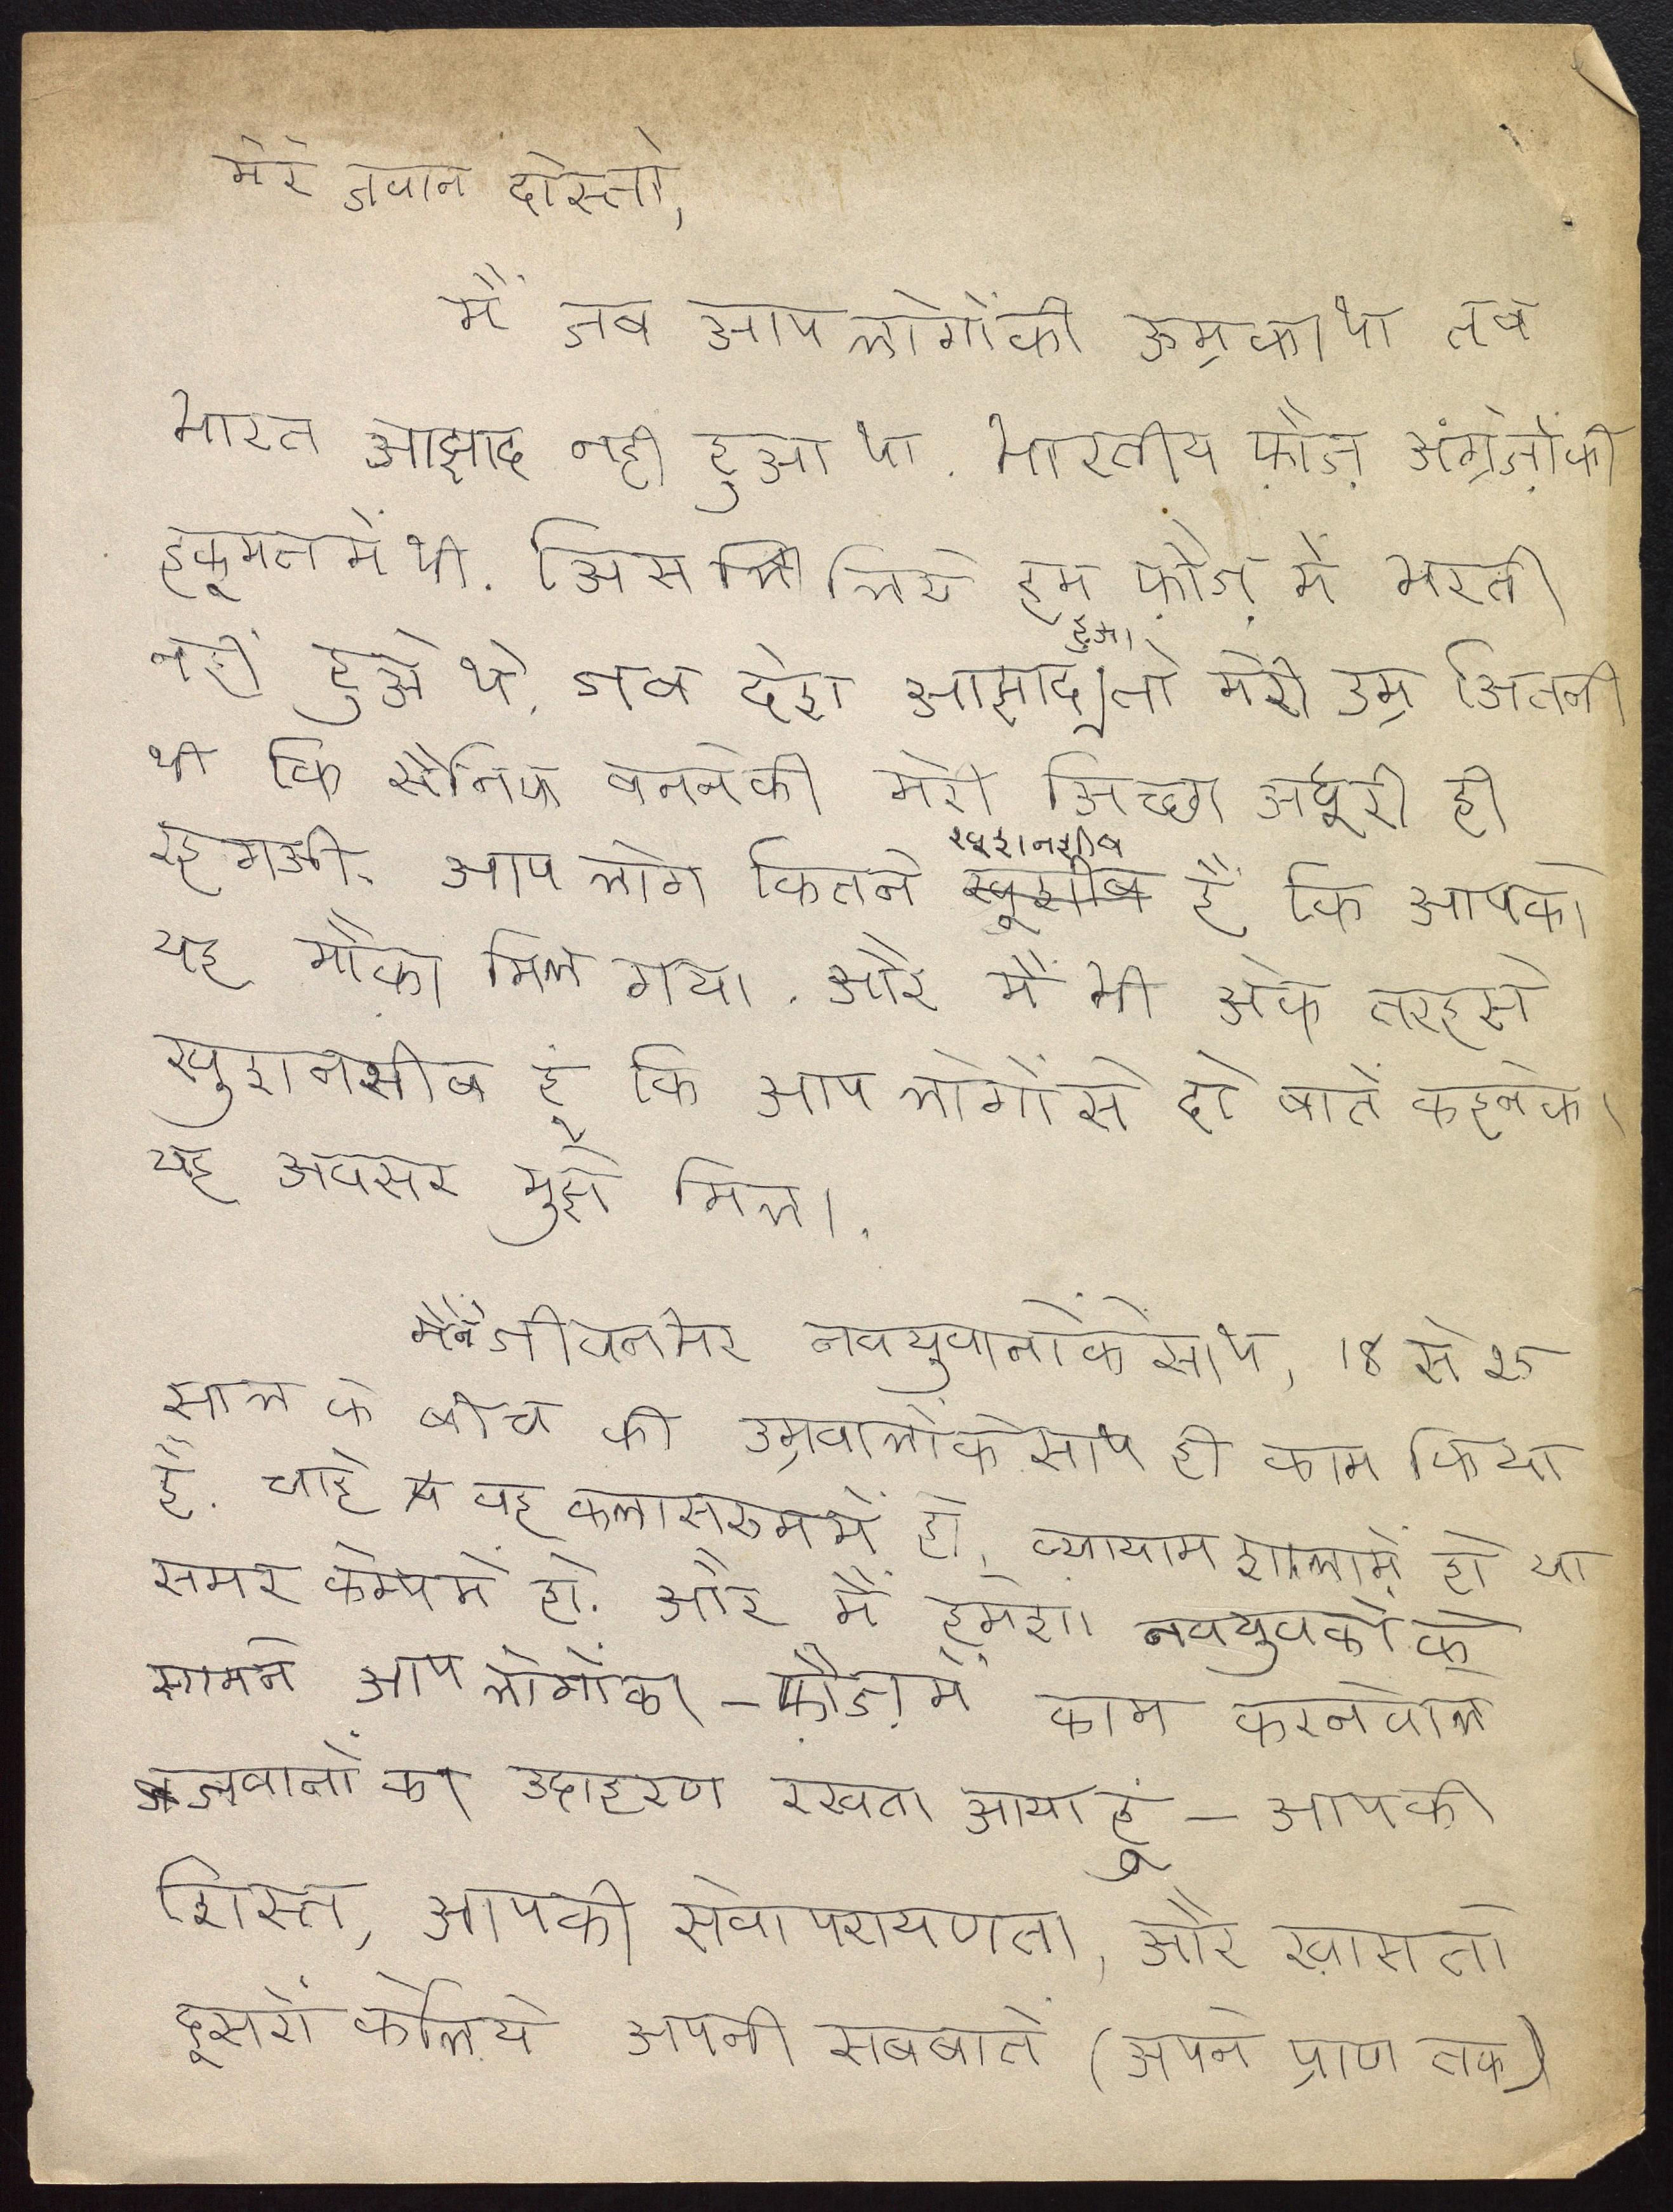 मेरे जवान दोस्तो,
मैं जब आप लोगोंकी ऊम्रका था तब
भारत आझाद नही हुआ था. भारतीय फ़ौज़ अंग्रेज़ोंकी
हकूमतमें थी. अिस लिये हम फ़ौज़ में भरती
नहीं हुअे थे. जब देश आझाद हुआ तो मेरी उम्र अितनी
थी कि सैनिक बननेकी मेरी अिच्छा अधूरी ही
रह गअी. आप लोग कितने खुशनशीब हैं कि आपको
यह मौक़ा मिल गया. और मैं भी अेक तरहसे
खुशनसीब हूं कि आप लोगोंसे दो बातें कहनेका
यह अवसर मुझे मिला.
मैंने जीवनभर नवयुवानोंके साथ, 18 से २५
साल के बीच की उम्रवालोंके साथ ही काम किया
है. चाहे वह कलासरुममें हो, व्यायामशालामें हो या
समर केम्पमें हो. और मैं हमेशा नवयुवकों के
सामने आप लोगोंका - फ़ौज़में काम करनेवाले
जवानों का उदाहरण रखता आया हूं - आपकी
शिस्त, आपकी सेवापरायणता, और ख़ास तो
दूसरों केलिये अपनी सबबातें (अपने प्राण तक)